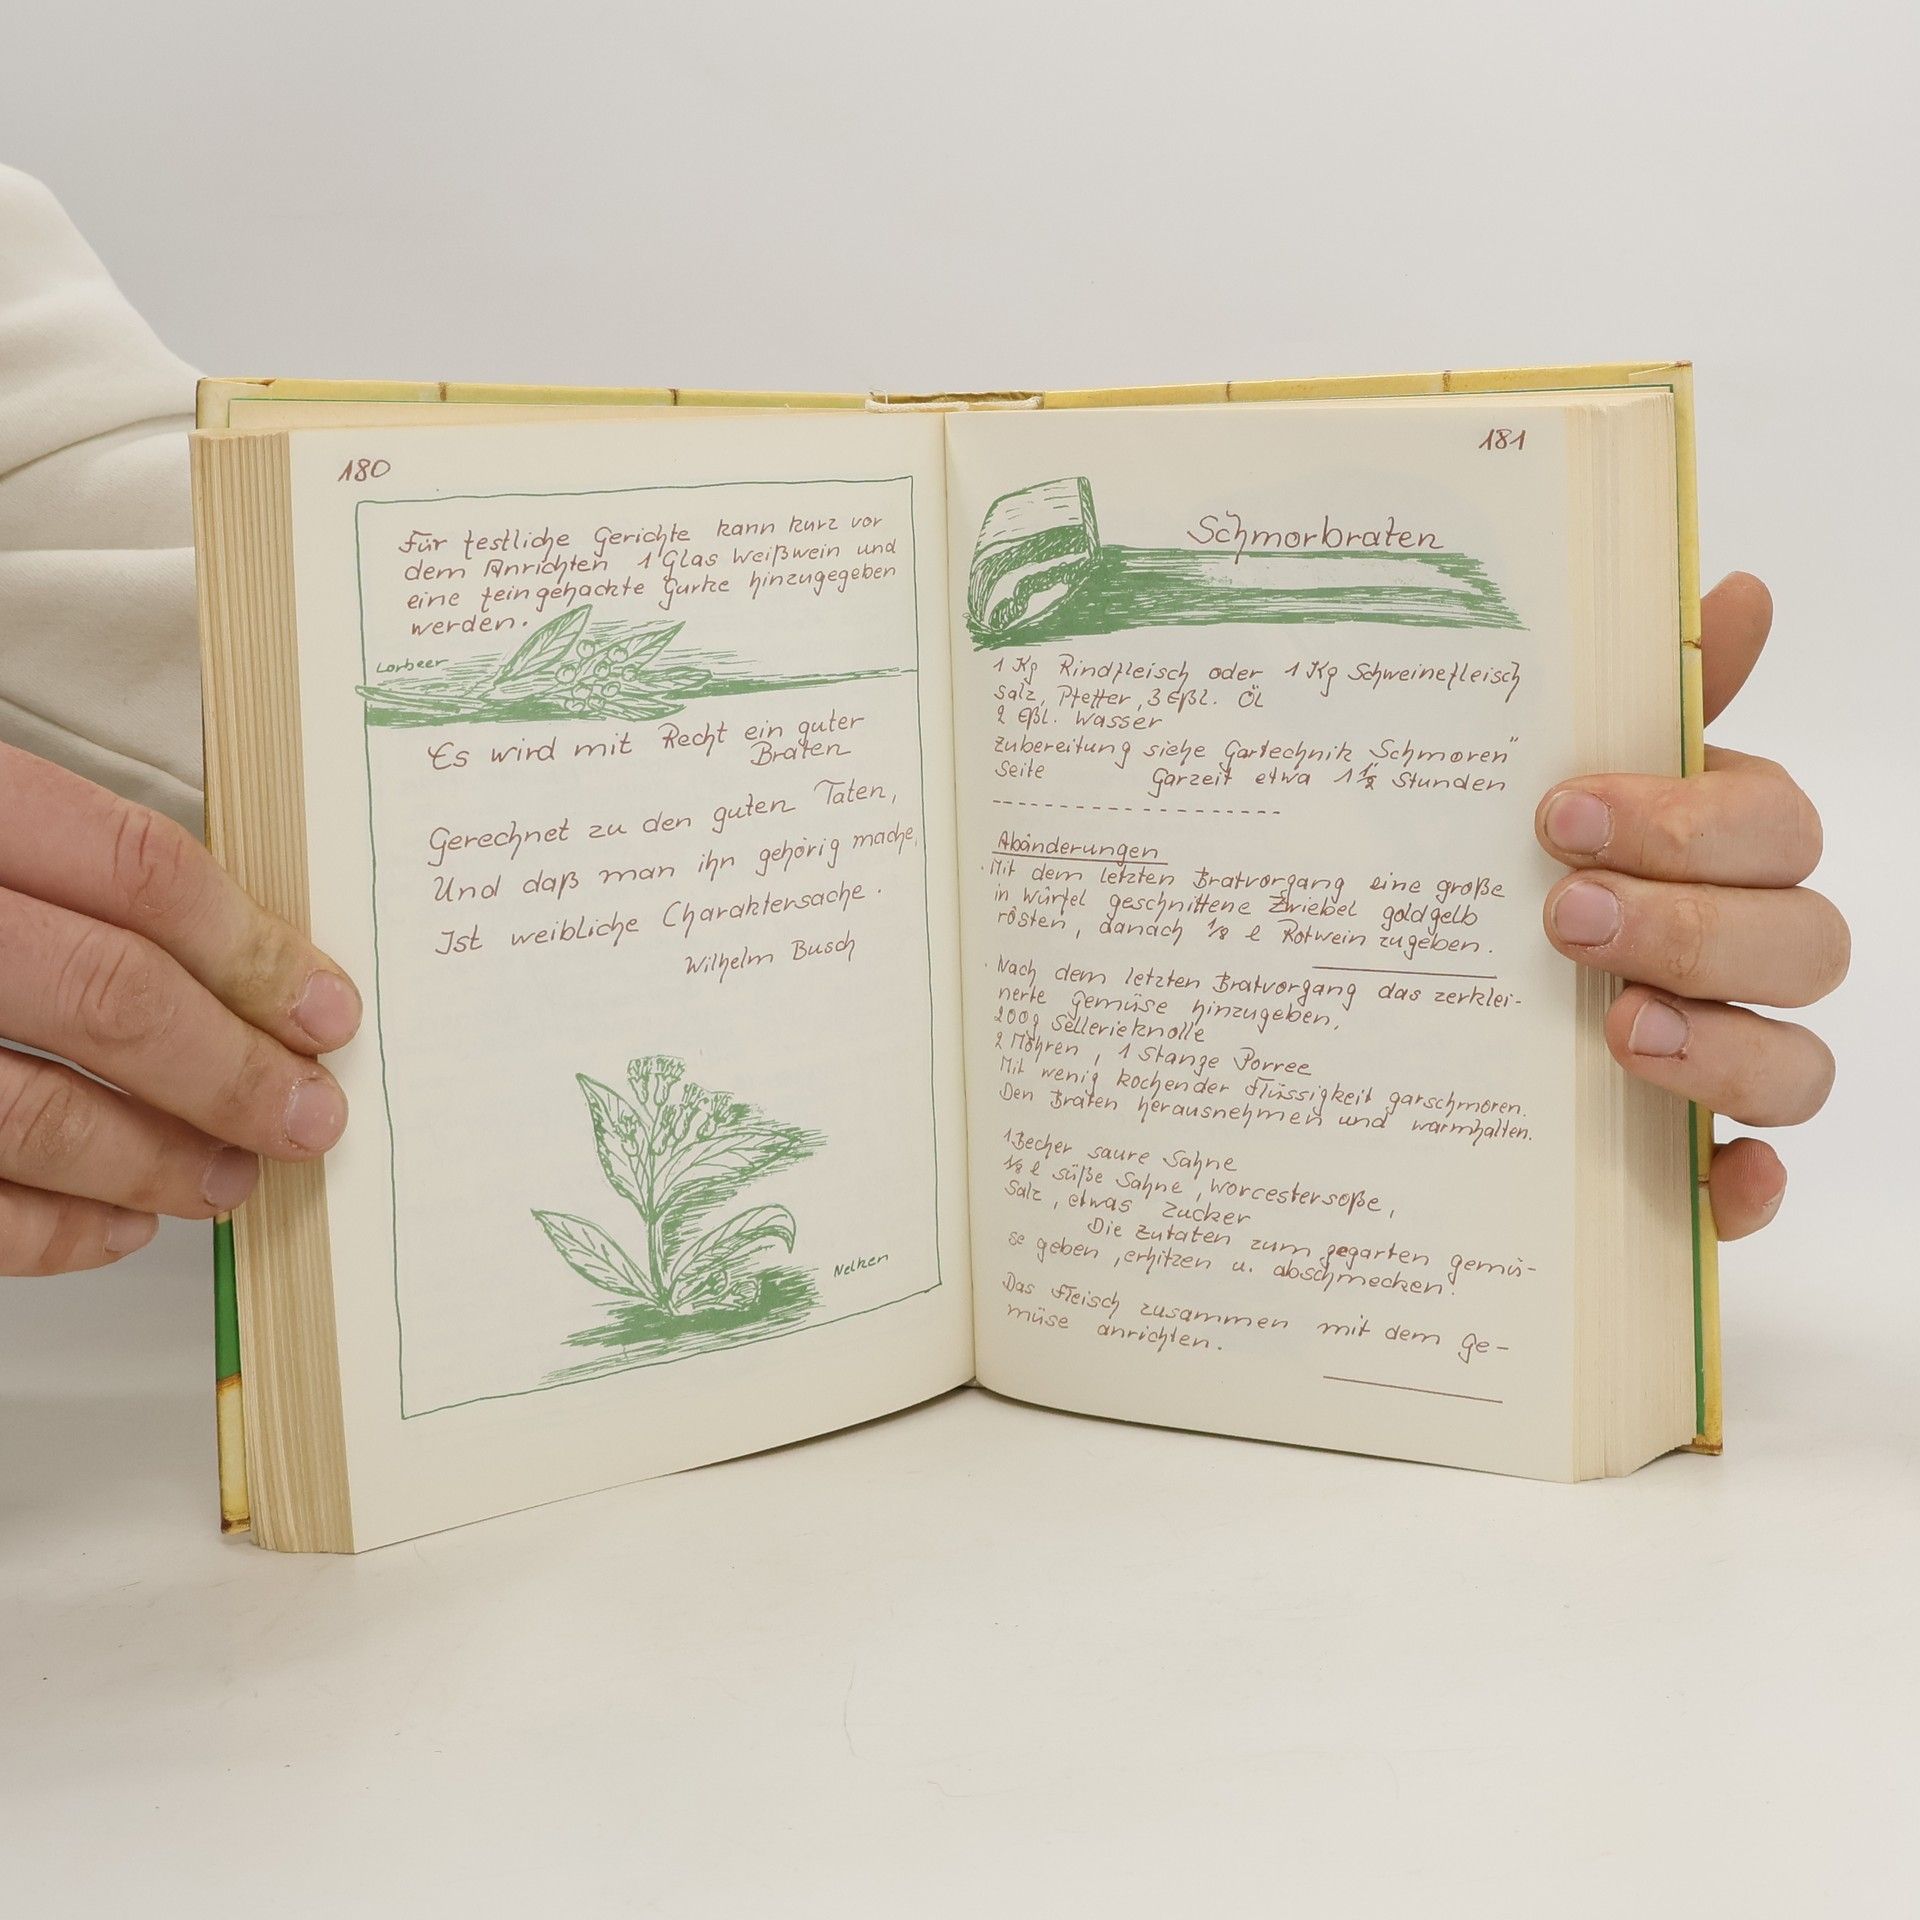 180
Für festliche Gerichte kann kurz vor
dem Anrichten 1 Glas Weißwein und
eine feingehackte Gurke hinzugegeben
werden.
Lorbeer
Es wird mit Recht ein guter
Braten
Gerechnet zu den guten Taten,
Und daß man ihn gehörig mache,
Ist weibliche Charaktersache.
Wilhelm Busch
Nelken
181
Schmorbraten
1 Kg Rindfleisch oder 1 Kg Schweinefleisch
Salz, Pfeffer, 3 Eßl. Öl
2 Eßl. Wasser
Zubereitung siehe Gartechnik "Schmoren"
Seite Garzeit etwa 1 1/2 Stunden
Abänderungen
· Mit dem letzten Bratvorgang eine große
in Würfel geschnittene Zwiebel goldgelb
rösten, danach 1/8 l Rotwein zugeben.
· Nach dem letzten Bratvorgang das zerklei-
nerte Gemüse hinzugeben.
200g Sellerieknolle
2 Möhren, 1 Stange Porree
Mit wenig kochender Flüssigkeit garschmoren.
Den Braten herausnehmen und warmhalten.
1 Becher saure Sahne
1/8 l süße Sahne, Worcestersoße,
Salz, etwas Zucker
Die Zutaten zum gegarten Gemü-
se geben, erhitzen u. abschmecken.
Das Fleisch zusammen mit dem Ge-
müse anrichten.